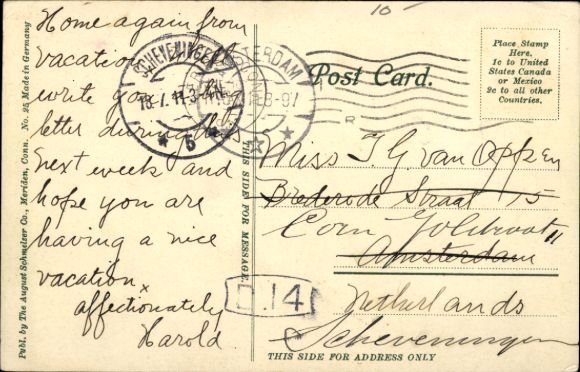 Publ. by The August Schmelzer Co., Meriden, Conn. No. 25 Made in Germany
Home again from
vacation. Will
write you a
letter during this
next week and
hope you are
having a nice
vacation.
affectionately
Harold.
THIS SIDE FOR MESSAGE.
10
SCHEVENINGEN
18.7.11.3-4N
5
Post Card.
Place Stamp
Here.
1c to United
States Canada
or Mexico
2c to all other
Countries.
Miss J G van Oppen
Brederode Straat 75
Amsterdam
Netherlands
Scheveningen
14
THIS SIDE FOR ADDRESS ONLY